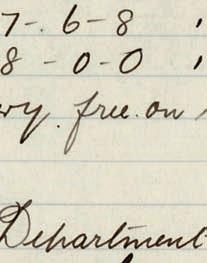 7-6-8
8-0-0
free on
Department